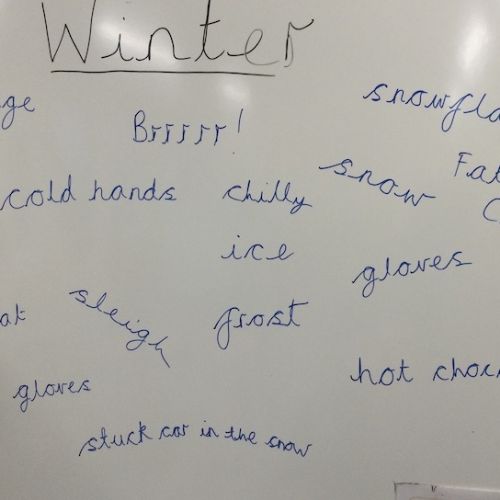 Winter
ge
snowfla
Brrrrr!
snow
Fat
C
cold hands
chilly
ice
gloves
at
sleigh
frost
gloves
hot choc
stuck car in the snow